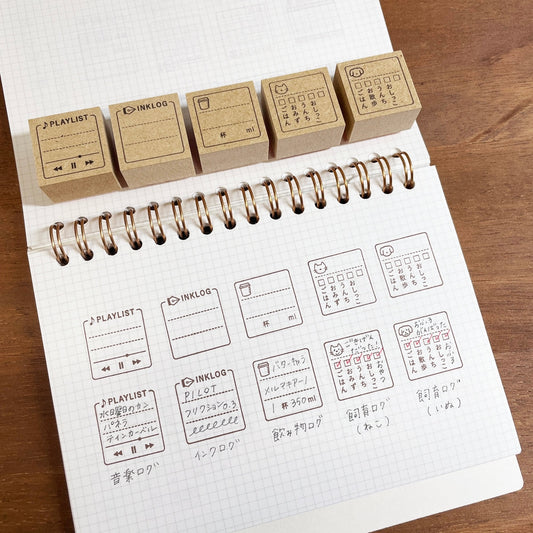 PLAYLIST
INKLOG
杯 ml
ごはん
おみず
うんち
おしっこ
ごはん
お散歩
うんち
おしっこ
PLAYLIST
INKLOG
杯 ml
ごはん
おみず
うんち
おしっこ
ごはん
お散歩
うんち
おしっこ
PLAYLIST
水曜日のカン
パネラ
ティンカーベル
INKLOG
PILOT
フリクション0.3
バターキャラ
メルマキアート
1杯 350ml
ごはん
おみず
うんち
ごはん
お散歩
うんち
おしっこ
音楽ログ
インクログ
飲み物ログ
飼育ログ
(ねこ)
飼育ログ
(いぬ)